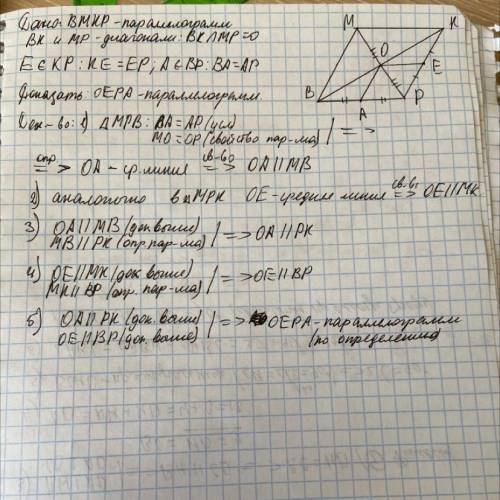 Дано: BMKP - параллелограмм
BK и MP - диагонали: BK∩MP=O
E∈KP: KE=EP, A∈BP: BA=AP
Доказать: OEPA - параллелограмм.
Док-во: 1) △MPB: BA=AP (усл)
MO=OP (свойство пар-ма) | =>
опр => OA - ср. линия св-во => OA||MB
2) аналогично в △MPK OE - средняя линия св-во => OE||MK.
3) OA||MB (док. выше)
MB||PK (опр. пар-ма) | => OA||PK
4) OE||MK (док. выше)
MK||BP (опр. пар-ма) | => OE||BP
5) OA||PK (док. выше)
OE||BP (доп. выше) | => OEPA - параллелограмм
(по определению)
M
K
O
E
B
A
P